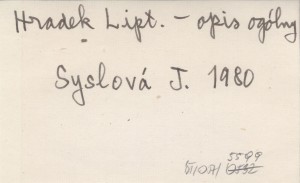 Hradek Lipt. – opis ogólny
Syslová J. 1980
5599